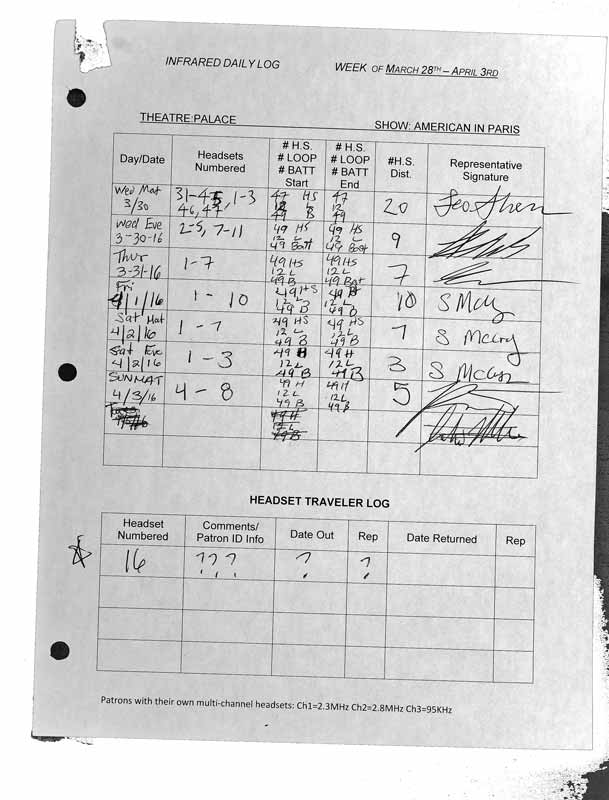 INFRARED DAILY LOG WEEK OF MARCH 28TH – APRIL 3RD
THEATRE:PALACE SHOW: AMERICAN IN PARIS
Day/Date Headsets Numbered # H.S. # LOOP # BATT Start # H.S. # LOOP # BATT End #H.S. Dist. Representative Signature
Wed Mat 3/30 31-45, 1-3 46, 47 47 HS 12 L 49 B 47 12 49 20
Wed Eve 3-30-16 2-5, 7-11 49 HS 12 L 49 Batt 49 HS 12 L 49 Batt 9
Thur 3-31-16 1-7 49 HS 12 L 49 B 49 HS 12 L 49 Bat 7
Fri 4/1/16 1 - 10 49 HS 12 L 49 B 49 12 L 49 B 10
Sat Mat 4/2/16 1 - 7 49 HS 12 L 49 B 49 HS 12 L 49 B 7
Sat Eve 4/2/16 1 - 3 49 H 12 L 49 B 49 H 12 L 49 B 3
SUN MAT 4/3/16 4 - 8 49 H 12 L 49 B 49 H 12 L 49 B 5
49 H 12 L 49 B
HEADSET TRAVELER LOG
Headset Numbered Comments/ Patron ID Info Date Out Rep Date Returned Rep
16 ??? ? ?
Patrons with their own multi-channel headsets: Ch1=2.3MHz Ch2=2.8MHz Ch3=95KHz